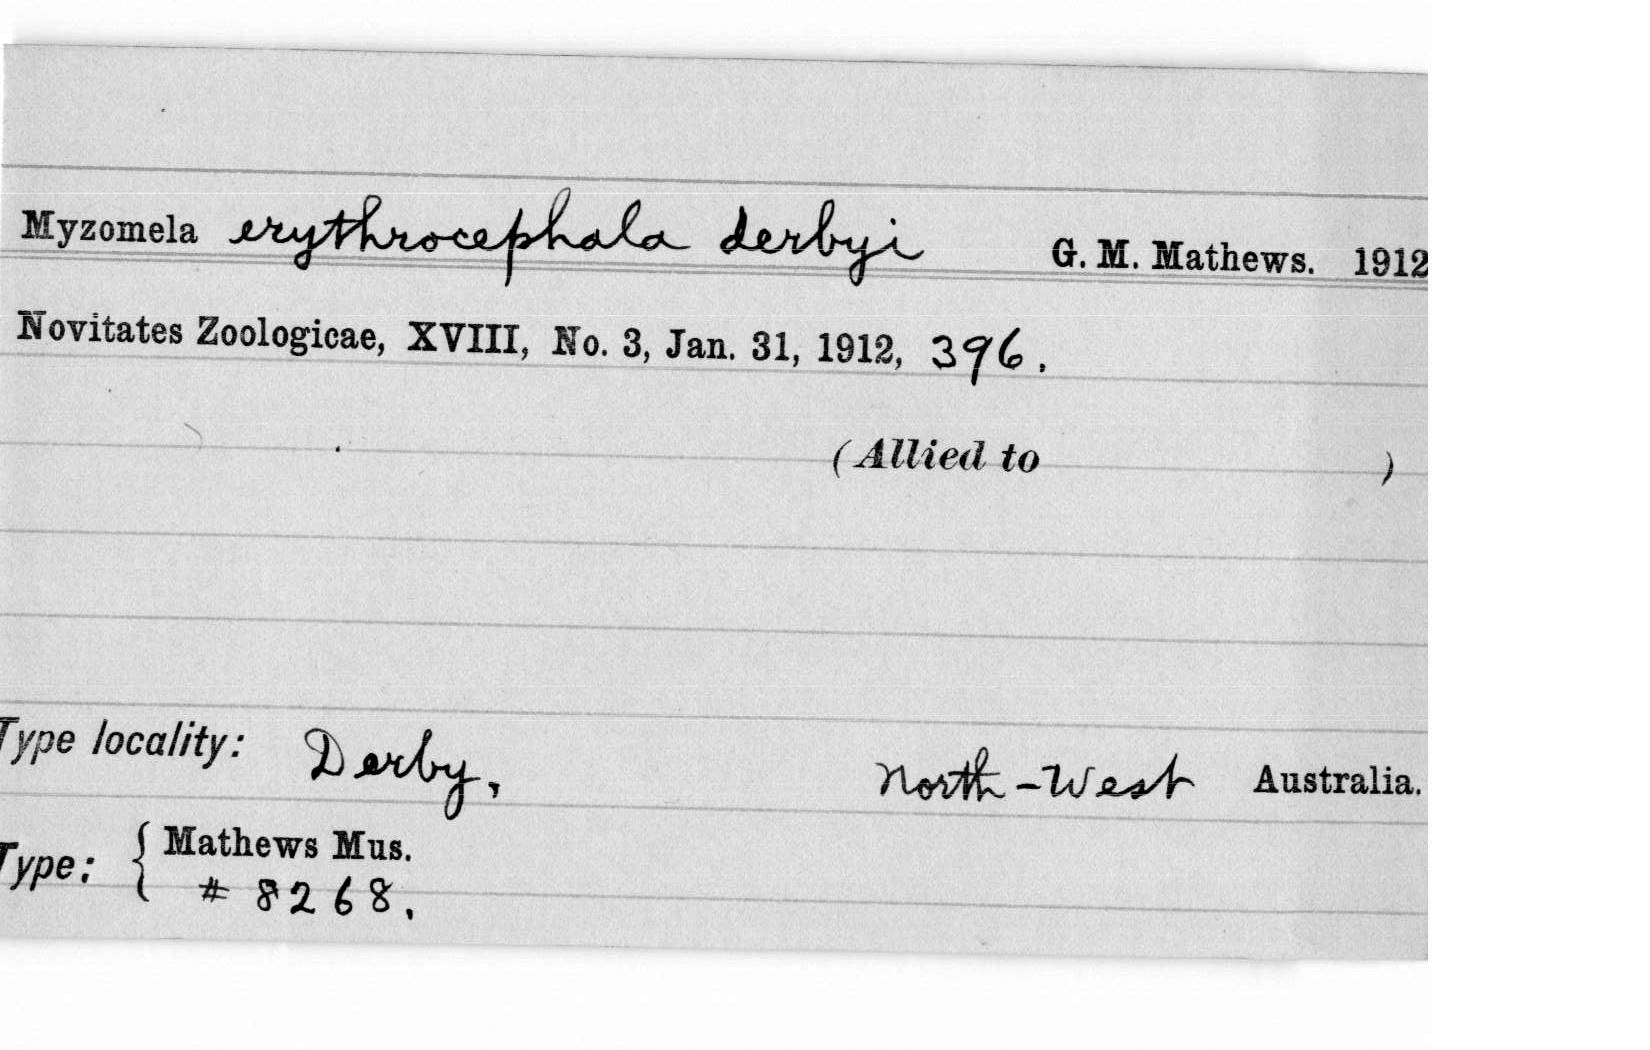 Myzomela erythrocephala derbyi G. M. Mathews. 1912
Novitates Zoologicae, XVIII, No. 3, Jan. 31, 1912, 396.
(Allied to )
Type locality: Derby, North-West Australia.
Type: { Mathews Mus.
# 8268.